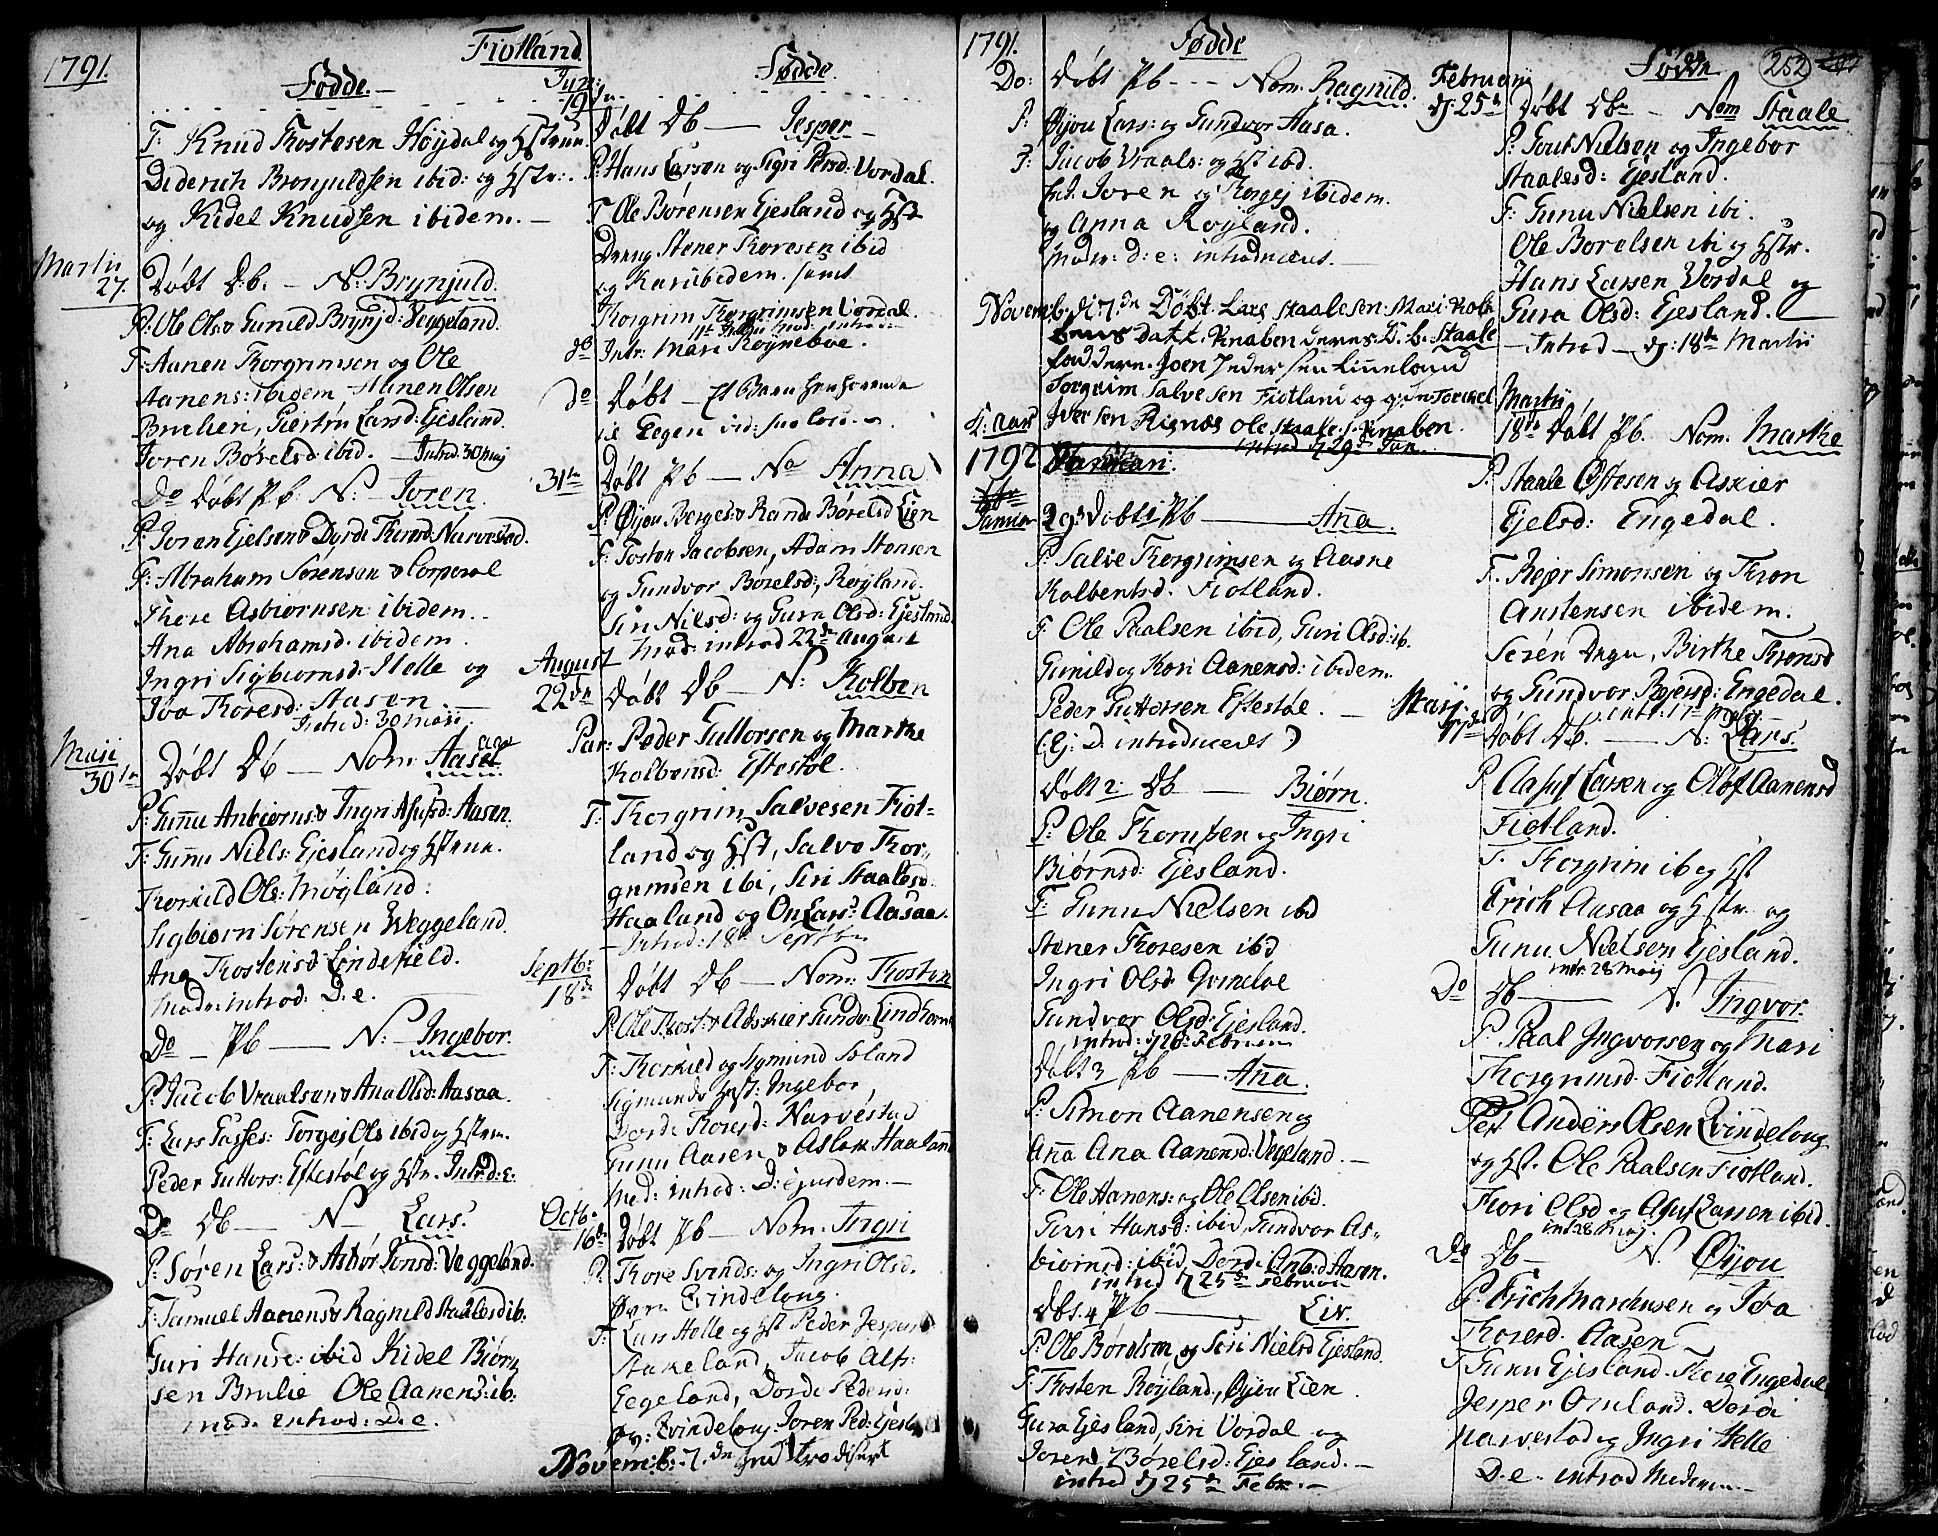 1791.
Fiotland
Fødde.
F: Knud Trostesen Høydal og Hstrue
Diderich Bronjuldsen ibid: og Hstr:
og Kidel Knudsen ibidem. —
Martii
27.
Døbt Db. — N: Brynjuld.
P: Ole Ols & Gunild Brynjd: Veggeland.
F: Aanen Torgrimsen og Ole
Aanens: ibidem, Aanen Olsen
Brulien, Giertru Larsd: Ejesland.
Joren Børelsd ibid. — Introd. 30 Maj
Do Døbt Pb. N: — Joren.
P: Joran Ejelsen & Dorde Thoresd: Narvestad.
F: Abraham Sørensen & Corporal
Thore Asbiørnsen ibidem.
Ana Abrahamsd. ibidem.
Ingri Sigbiornsd: Helle og
Jøa Thoresd: Aasen.
Introd: 30 Maii
Maii
30te
Døbt Db — Nom: Aasel
P: Gunnu Anbiørns: & Ingri Asufsd: Aasen.
F: Gunnu Niels: Ejesland og Hstrue.
Thorkild Ols: Møgland.
Sigbiørn Sørensen Weggeland.
Ana Trostensd Lindefield.
Modr: introd: D. e.
Do — Pb — N: — Ingebor.
P: Jacob Vraalsen & Ana Olsd: Aasaa.
F: Lars Tasses: Torgej Ols ibid og Hstru.
Peder Guttors: Eftestøl og Hstr. Introd: E:
Do Db — N — Lars.
P: Søren Lars: & Astrør Tonsd: Veggeland.
F: Samuel Aanens & Ragnild Staalesd ib:
Guri Hanse: ibid Kidel Biørn
sen Brulie Ole Aanens: ib.
Mod. introd: D. e.
Fødde.
19de
Døbt Db — Jesper
P: Hans Larsen og Sigri Persd: Vordal.
F Ole Børensen Ejesland og Hst
Dreng Stener Thoresen ibid
og Kari ibidem. samt
Thorgrim Thorgrimsen Vordal.
do Intr: Mari Røyneboe.
do Døbt — Et Barn
31te Døbt Pb — No Anna
P: Øijou Berges: & Rande Børelsd Lien
F: Tosten Jacobsen, Adam Stensen
og Gundvor Børelsd:, Røyland.
Siri Nielsd: og Gura Olsd: Ejesland
Mod: introd 22de August
August
22de
Døbt Db — N: Kolben
Par: Peder Guttorsen og Marthe
Kolbensd: Eftestøl.
F: Thorgrim Salvesen Fiot-
land og Hst, Salve Thor-
grimsen ibi, Siri Staalesd:
Haaland og On Lars: Aasaa.
— Introd: 18de Septbr
Septb:
18de
Døbt Db — Nom: Trosten
P: Ole Trost: & Adskier Gundv: Lindhom
F: Thorkild og Sigmund Soland
Sigmunds Hst: Ingebor,
Dorde Thoresd: Narvestad
Gunu Aasen & Aslak Haaland
Mod: introd: D: ejusdem. —
Octb.
16de
Døbt Pb — Nom: Ingri
P. Thore Svinds: og Ingri Olsd.
Øvre Qvindeloug.
F: Lars Helle og Hst Peder Jespers
Stakeland, Jacob Alfs:
Eegeland, Dorde Pedersd:
øv: Qvindeloug Joren Ped: Ejesl
Novemb: 7.de Introdisert
1791.
Fødde
Do: Døbt Pb — Nom: Ragnild.
P: Øijou Lars: og Gundvor Aasa.
F: Jacob Vraals: og Hst ibid.
Joren og Torgej ibidem.
og Anna Røyland.
Moder: D: e: introduceres. —
Novemb: d: 7.de Døbt. Lars Staalesen. Mari Kolb
Knaben deres D. b. Staale
Fadderne. Joen Pedersen Linneland
Torgrim Salvesen Fiotland og
Iversen Risnes Ole Staales: Knaben.
introd 29de Jan.
1792
Januari.
Januar 29de Døbt 1 Pb — Ana.
P: Salve Thorgrimsen og Aasne
Kolbentsd. Fiotland.
F: Ole Paalsen ibid, Guri Olsd: ib.
Gunild og Kari Aanensd: ibidem.
Peder Guttorsen Eftestøl. —
(Ej: D. introduceres)
Døbt 2 Db — Biørn.
P: Ole Thorussen og Ingri
Biørnsd: Ejesland.
F: Gunu Nielsen ibd
Stener Thoresen ibd
Ingri Olsd Qvineloe
Gundvor Olsd: Ejesland.
Døbt 3 Pb — Ana.
P: Simon Aanensen og
Ana Ana Aanensd: Vegeland. —
F: Ole Aanens: og Ole Olsen ibid.
Guri Hansd: ibid, Gundvor As-
biørnsd: ibid, Dorde Anbd: Aasen.
introd d 25de Februar
Døbt 4 Pb — Liv.
P: Ole Børelsen og Siri Nielsd Ejesland.
F: Trosten Røyland, Øijou Lien.
Gura Ejesland, Siri Vordal og
Joren Børelsd: Ejesland. —
introd d 25de Febr. —
Fødde
252
Februari
d: 25de
Døbt Db — Nom Staale
P: Gout Nielsen og Ingebor
Staalesd: Ejesland.
F: Gunu Nielsen ibi.
Ole Borelsen ibi og Hstr.
Hans Larsen Vordal og
Gura Olsd: Ejesland.
— Introd — d: 18de Martii
Martii
18de Døbt Pb. Nom: Marthe
P. Staale Øftesen og Askier
Ejelsd: Engedal.
F. Rejer Simonsen og Thron
Anstensen ibidem.
Seren Ingu, Birthe Thronsd
og Gundvor Rejersd: Engedal.
Maij.
17de
Døbt Db. — N: Lars.
P. Aasuf Larsen og Oløf Aanensd
Fiotland.
F. Thorgrim ib og Hst
Erich Aasaa og Hstr og
Gunu Nielsen Ejesland.
intr. 28 Maij
Do Db — N. Ingvor.
P. Paal Ingvorsen og Mari
Thorgrimsd. Fiotland.
Anders Olsen Qvindeloug
og Hst. Ole Paalsen Fiotland.
Kiori Olsd og Asuf Larsen ibid.
int. 28 Maj.
Do Db — N. Øijou
P. Erich Marchusen og Jøa
Thoresd. Aasen
F Gunu Ejesland. Thore Engedal
Jesper Omland. Dorde
Narvestad og Ingri Helle
D. e. introd Moderen. —